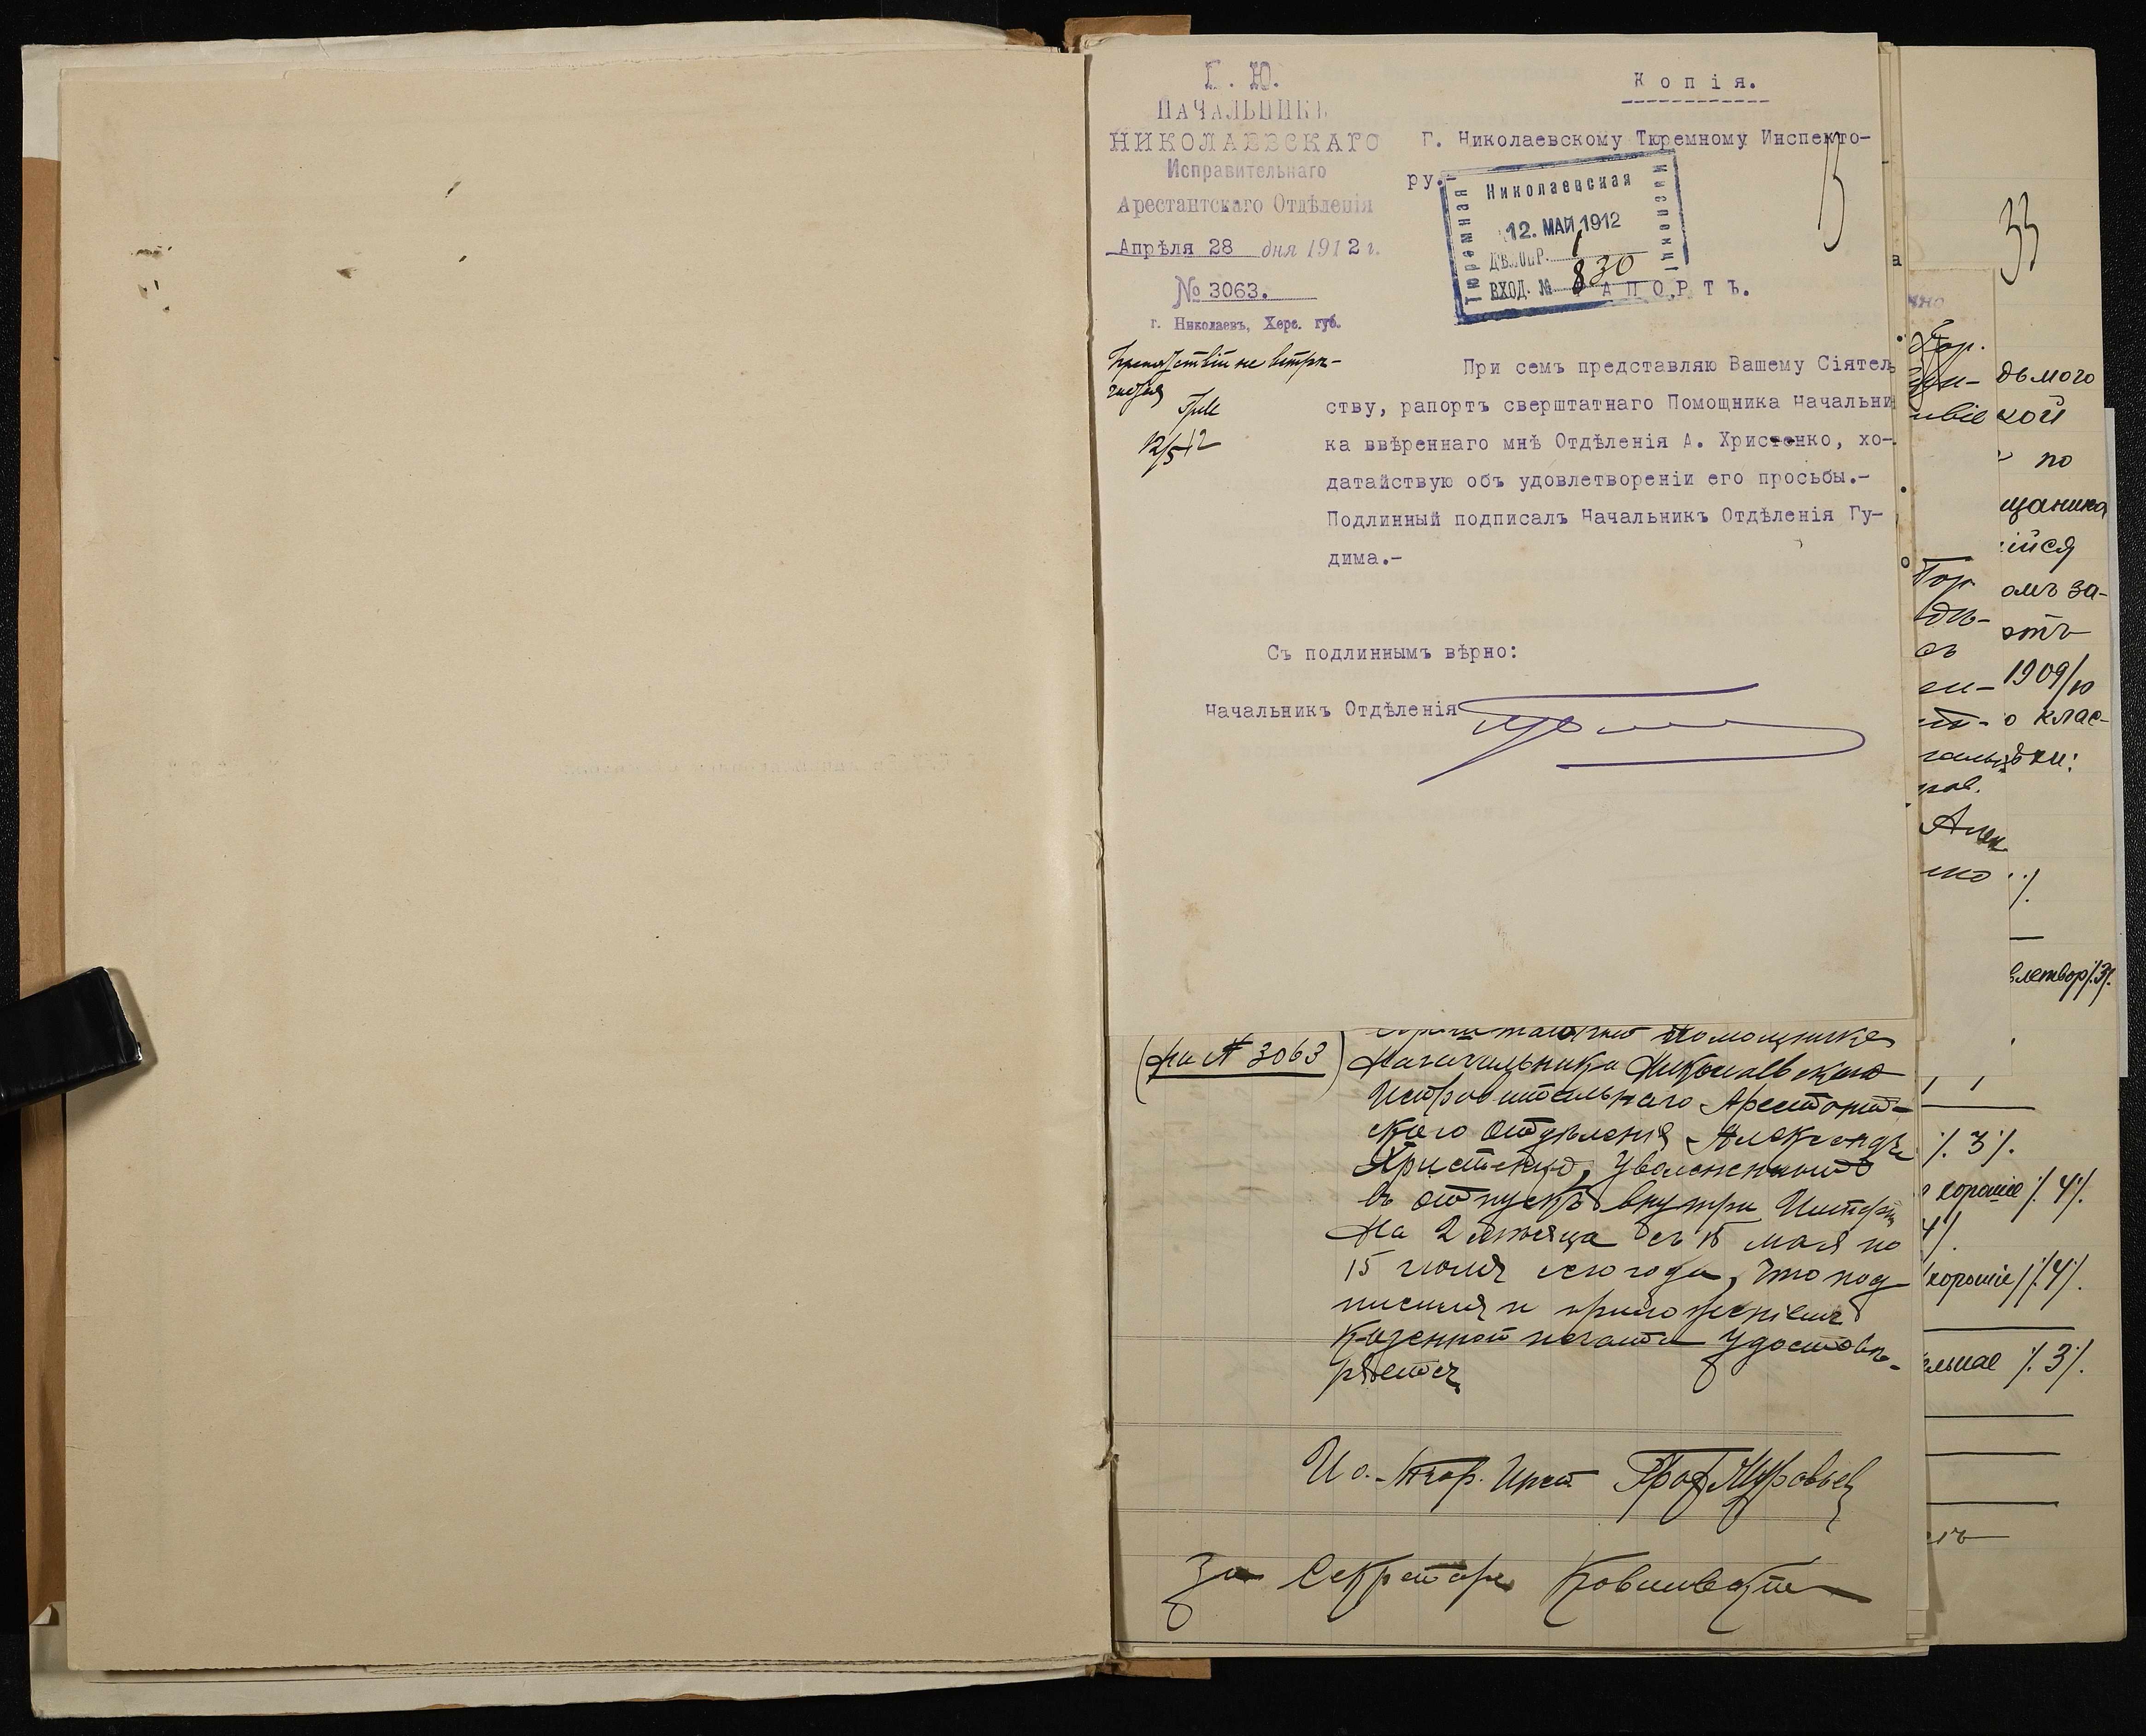 Г. Ю.
НАЧАЛЬНИКЪ
НИКОЛАЕВСКАГО
Исправительнаго
Арестантскаго Отдѣленія
Апрѣля 28 дня 1912 г.
№ 3063.
г. Николаевъ, Херс. губ.
Препятствій не встрѣ-
чается
12/5 12
Копія.
Г. Николаевскому Тюремному Инспекто-
ру.
Николаевская
Тюремная
Инспекція
12. МАЙ 1912
ДѢЛОПР. 1
ВХОД. № 830
РАПОРТЪ.
При семъ представляю Вашему Сіятель
ству, рапортъ сверштатнаго Помощника Начальни
ка ввѣреннаго мнѣ Отдѣленія А. Христенко, хо-
датайствую объ удовлетвореніи его просьбы.-
Подлинный подписалъ Начальникъ Отдѣленія Гу-
дима.-
Съ подлиннымъ вѣрно:
Начальникъ Отдѣленія
(На № 3063)
Помощника
Начальника Николаевскаго
Исправительнаго Арестант-
скаго Отдѣленія Александръ
Христенко, уволенному
въ отпускъ внутри Имперіи
на 2 мѣсяца съ 15 мая по
15 іюля сего года, что под
писями и приложеніемъ
казенной печати удостовѣ-
ряется
И о. Тюр. Инсп Граф Муровьев
За Секретаря
33
дьмого
кой
по
щаника
ійся
омъ за-
отъ
1909/10
о клас-
влетвор /.3/.
/. 3 /.
хорошіе /. 4 /.
хорошіе /. 4 /.
ельное /. 3 /.